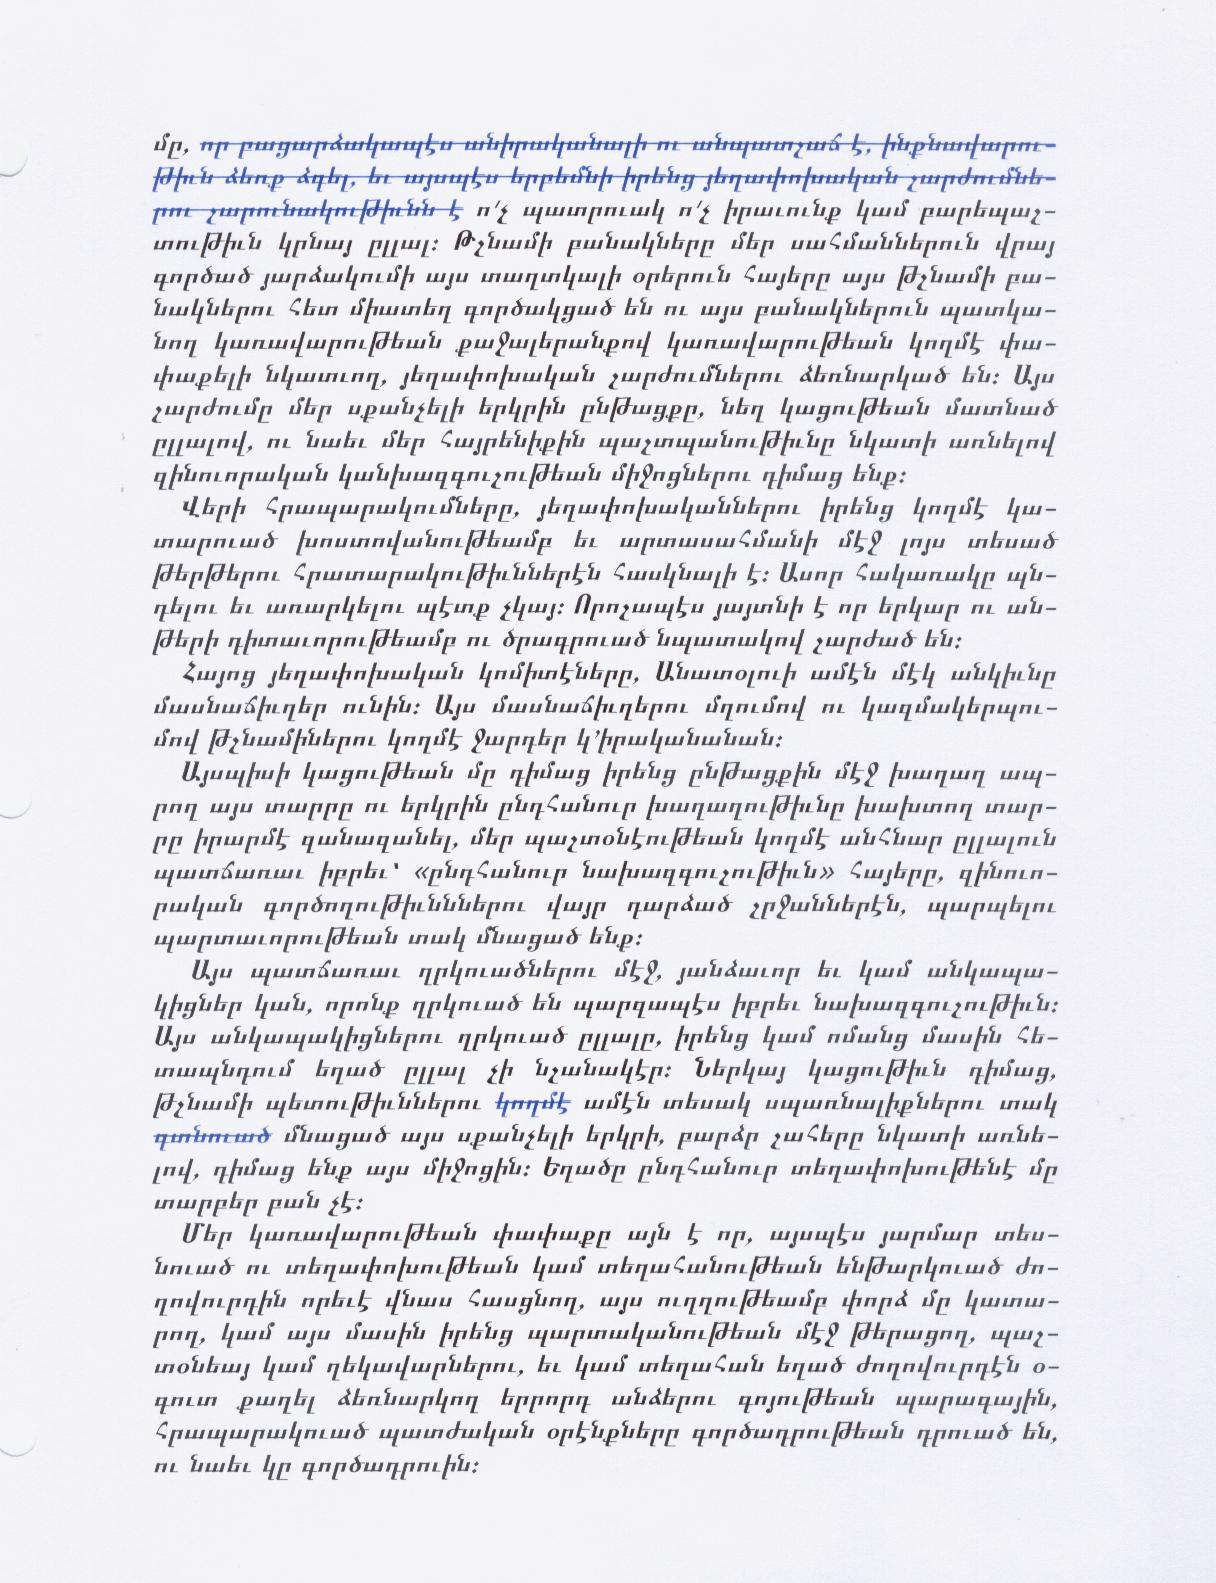 մը, որ բացարձակապէս անիրականալի ու անպատշաճ է, ինքնավարու-
թիւն ձեռք ձգել, եւ այսպէս երբեմնի իրենց յեղափոխական շարժումնե-
րու շարունակութիւնն է ո՛չ պատրուակ ո՛չ իրաւունք կամ բարեպաշ-
տութիւն կրնայ ըլլալ։ Թշնամի բանակները մեր սահմաններուն վրայ
գործած յարձակումի այս տաղտկալի օրերուն Հայերը այս թշնամի բա-
նակներու հետ միատեղ գործակցած են ու այս բանակներուն պատկա-
նող կառավարութեան քաջալերանքով կառավարութեան կողմէ փա-
փաքելի նկատւող, յեղափոխական շարժումներու ձեռնարկած են։ Այս
շարժումը մեր սքանչելի երկրին ընթացքը, նեղ կացութեան մատնած
ըլլալով, ու նաեւ մեր Հայրենիքին պաշտպանութիւնը նկատի առնելով
զինուորական կանխազգուշութեան միջոցներու դիմաց ենք։
Վերի հրապարակումները, յեղափոխականներու իրենց կողմէ կա-
տարուած խոստովանութեամբ եւ արտասահմանի մէջ լոյս տեսած
թերթերու հրատարակութիւններէն հասկնալի է։ Ասոր հակառակը պն-
դելու եւ առարկելու պէտք չկայ։ Որոշապէս յայտնի է որ երկար ու ան-
թերի դիտաւորութեամբ ու ծրագրուած նպատակով շարժած են։
Հայոց յեղափոխական կոմիտէները, Անատօլուի ամէն մէկ անկիւնը
մասնաճիւղեր ունին։ Այս մասնաճիւղերու մղումով ու կազմակերպու-
մով թշնամիներու կողմէ ջարդեր կ՚իրականանան։
Այսպիսի կացութեան մը դիմաց իրենց ընթացքին մէջ խաղաղ ապ-
րող այս տարրը ու երկրին ընդհանուր խաղաղութիւնը խախտող տար-
րը իրարմէ զանազանել, մեր պաշտօնէութեան կողմէ անհնար ըլլալուն
պատճառաւ իբրեւ՝ «ընդհանուր նախազգուշութիւն» Հայերը, զինուո-
րական գործողութիւնններու վայր դարձած շրջաններէն, պարպելու
պարտաւորութեան տակ մնացած ենք։
Այս պատճառաւ ղրկուածներու մէջ, յանձաւոր եւ կամ անկապա-
կիցներ կան, որոնք ղրկուած են պարզապէս իբրեւ նախազգուշութիւն։
Այս անկապակիցներու ղրկուած ըլլալը, իրենց կամ ոմանց մասին հե-
տապնդում եղած ըլլալ չի նշանակէր։ Ներկայ կացութիւն դիմաց,
թշնամի պետութիւններու կողմէ ամէն տեսակ սպառնալիքներու տակ
գտնուած մնացած այս սքանչելի երկրի, բարձր շահերը նկատի առնե-
լով, դիմաց ենք այս միջոցին։ Եղածը ընդհանուր տեղափոխութենէ մը
տարբեր բան չէ։
Մեր կառավարութեան փափաքը այն է որ, այսպէս յարմար տես-
նուած ու տեղափոխութեան կամ տեղահանութեան ենթարկուած ժո-
ղովուրդին որեւէ վնաս հասցնող, այս ուղղութեամբ փորձ մը կատա-
րող, կամ այս մասին իրենց պարտականութեան մէջ թերացող, պաշ-
տօնեայ կամ ղեկավարներու, եւ կամ տեղահան եղած ժողովուրդէն օ-
գուտ քաղել ձեռնարկող երրորդ անձերու գոյութեան պարագային,
հրապարակուած պատժական օրէնքները գործադրութեան դրուած են,
ու նաեւ կը գործադրուին։